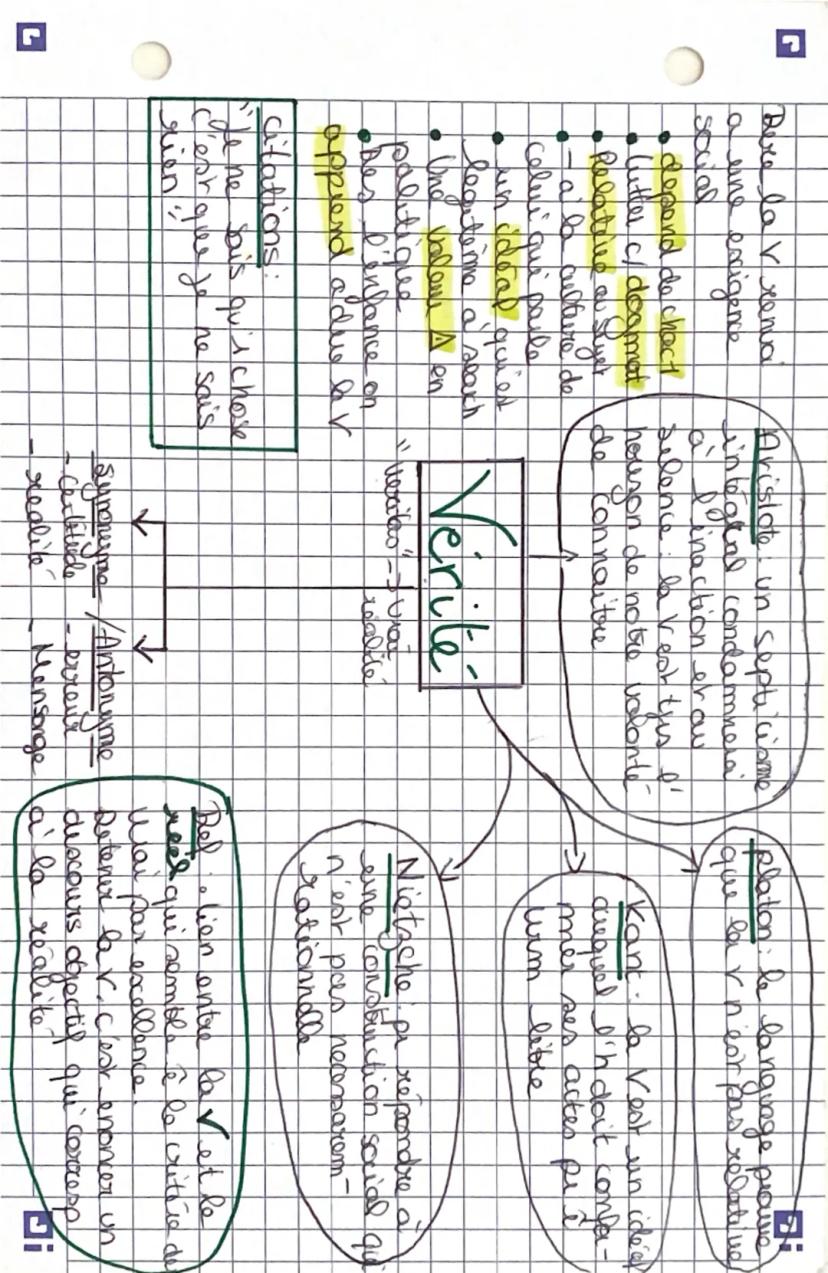 Dire la V remai
a une exigence
social
• dépend de chact
• lutter c/ dogmat
• Relative au sujet
• - à la culture de
celui qui parle
• un idéal qui est
légitime à search
• Une valeur Δ en
politique
• Dès l'enfance on
apprend a dire la V
citations:
"Je ne sais qu'1 chose
c'est que je ne sais
rien"
Aristote: un septicisme
intégral condamnerai
à l'inaction et au
silence: la V est tjrs l'
horizon de notre volonté
de connaître
Vérité
"veritas" -> vrai
réalité
Synonyme / Antonyme
- certitude - erreur
- réalité - Mensonge
Platon: le language prouve
que la V n'est pas relative
Kant: la V est un idéal
auquel l'h doit confo-
mer ses actes pr ê
libre
Nietzsche: pr répondre à
une construction social qui
n'est pas necessarem-
rationnelle
Def: lien entre la V et le
réel qui semble ê le critère de
vrai par excellence.
Détenir la V, c'est enoncer un
discours objectif qui corresp
à la réalité